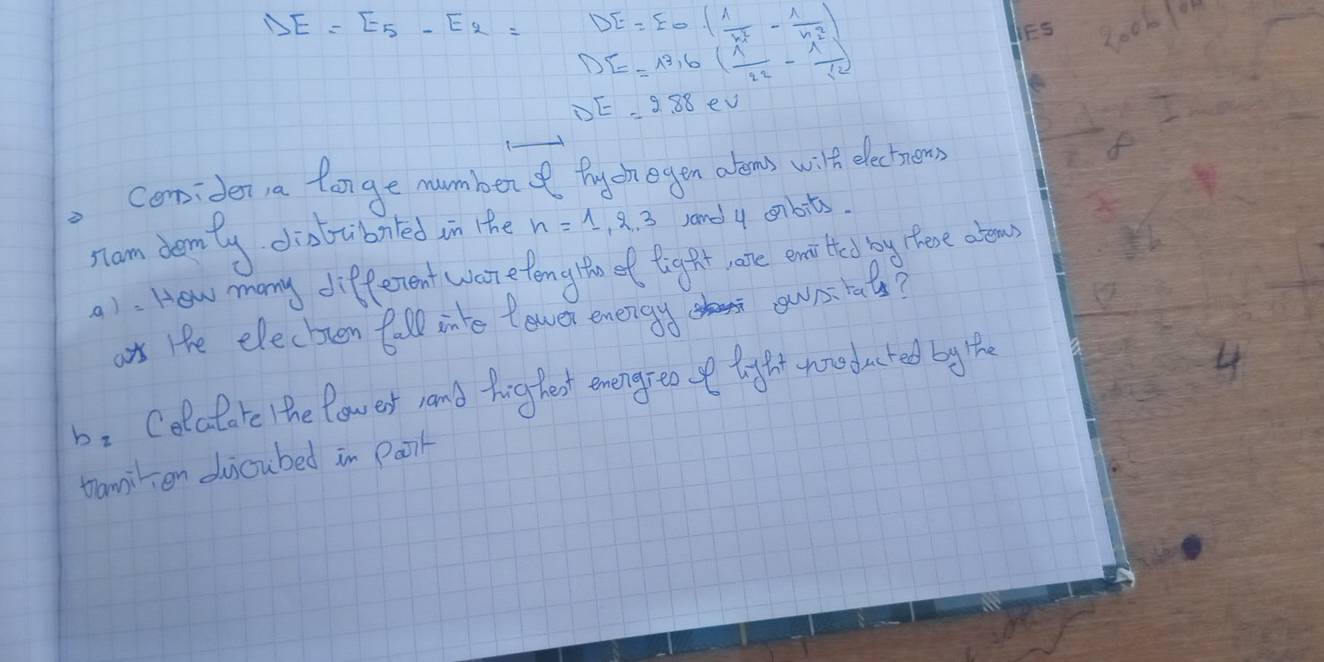 DE = E5 - E2 =     DE = E0 (1/n² - 1/n²)
DE = 13,6 (1/2² - 1/5²)
DE = 2.88 ev
Consider a large number of hydrogen atoms with electrons
ramdomly distribited in the n = 1, 2, 3 and 4 orbits.
a) = How many different wavelengths of light are emitted by these atoms
as the electron fall into lower energy
b = Calculate the lowest and highest energies of light producted by the
transition discribed in Part
ES
4